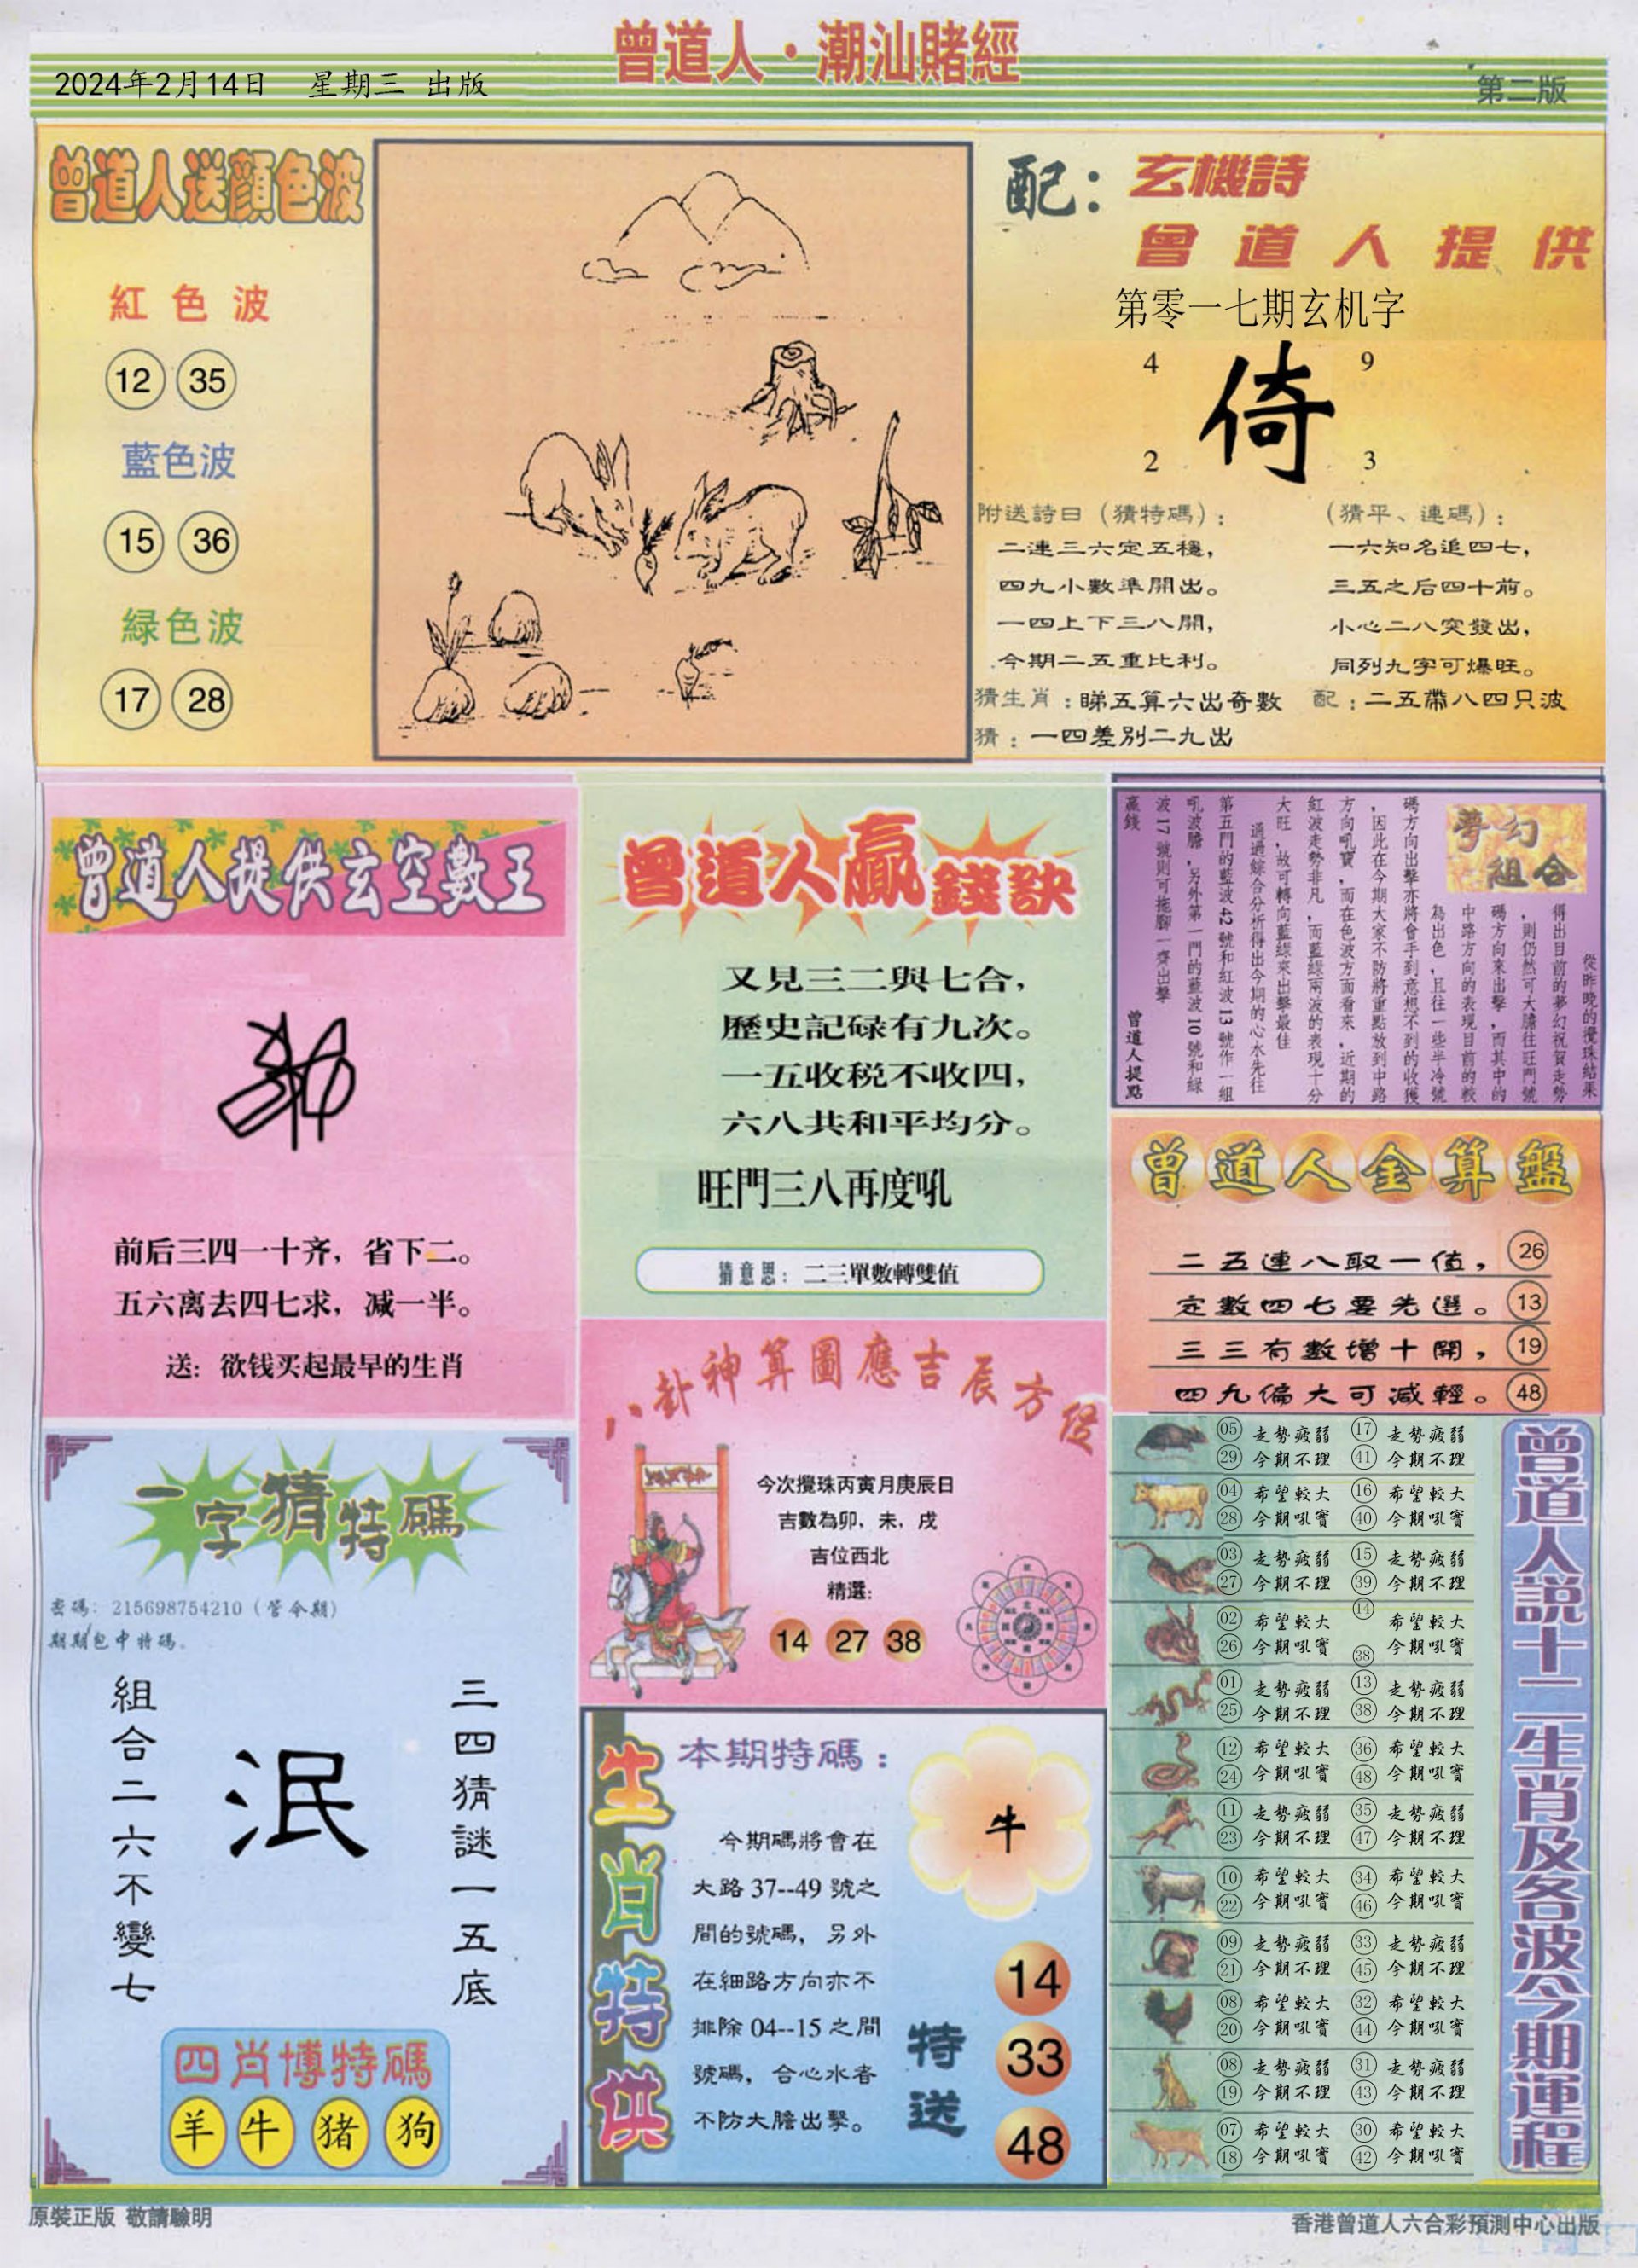 曾道人·潮汕賭經
2024年2月14日 星期三 出版
第二版
曾道人送顔色波
紅色波
12 35
藍色波
15 36
緑色波
17 28
配：玄機詩
曾道人提供
第零一七期玄机字
4 9
倚
2 3
附送詩日（猜特碼）：
二連三六定五穩，
四九小數準開出。
一四上下三八開，
今期二五重比利。
（猜平、連碼）：
一六知名追四七，
三五之后四十前。
小心二八突發出，
同列九字可爆旺。
猜生肖：睇五算六出奇數
配：二五帶八四只波
猜：一四差別二九出
曾道人提供玄空數王
前后三四一十齐，省下二。
五六离去四七求，减一半。
送：欲钱买起最早的生肖
曾道人贏錢訣
又見三二與七合，
歷史記碌有九次。
一五收税不收四，
六八共和平均分。
旺門三八再度吼
猜意思：二三單數轉雙值
夢幻
組合
從昨晚的攪珠結果
得出目前的夢幻祝賀走勢
，則仍然可大膽往旺門號
碼方向來出擊，而其中的
中路方向的表現目前的較
為出色，且往一些半冷號
碼方向出擊亦將會手到意想不到的收獲
，因此在今期大家不防將重點放到中路
方向吼寶，而在色波方面看來，近期的
紅波走勢非凡，而藍緑兩波的表現十分
大旺，故可轉向藍緑來出擊最佳
通過綜合分析得出今期的心水先往
第五門的藍波42號和紅波13號作一組
吼波膽，另外第一門的藍波10號和緑
波17號則可拖腳一齊出擊
贏錢
曾道人提點
曾道人金算盤
二五連八取一值，26
定數四七要先選。13
三三有數增十開，19
四九偏大可减輕。48
八卦神算圖應吉辰方位
今次攪珠丙寅月庚辰日
吉數為卯，未，戌
吉位西北
精選：
14 27 38
一字猜特碼
密碼：215698754210（管令期）
期期包中特碼。
三四猜謎一五底
泯
組合二六不變七
四肖博特碼
羊 牛 猪 狗
生肖特供
本期特碼：
今期碼將會在
大路37--49號之
間的號碼，另外
在細路方向亦不
排除04--15之間
號碼，合心水者
不防大膽出擊。
牛
特送
14
33
48
曾道人説十二生肖及各波今期運程
05 走勢疲弱 17 走勢疲弱
29 今期不理 41 今期不理
04 希望較大 16 希望較大
28 今期吼實 40 今期吼實
03 走勢疲弱 15 走勢疲弱
27 今期不理 39 今期不理
02 希望較大 14 希望較大
26 今期吼實 38 今期吼實
01 走勢疲弱 13 走勢疲弱
25 今期不理 38 今期不理
12 希望較大 36 希望較大
24 今期吼實 48 今期吼實
11 走勢疲弱 35 走勢疲弱
23 今期不理 47 今期不理
10 希望較大 34 希望較大
22 今期吼實 46 今期吼實
09 走勢疲弱 33 走勢疲弱
21 今期不理 45 今期不理
08 希望較大 32 希望較大
20 今期吼實 44 今期吼實
08 走勢疲弱 31 走勢疲弱
19 今期不理 43 今期不理
07 希望較大 30 希望較大
18 今期吼實 42 今期吼實
原裝正版 敬請驗明
香港曾道人六合彩預測中心出版